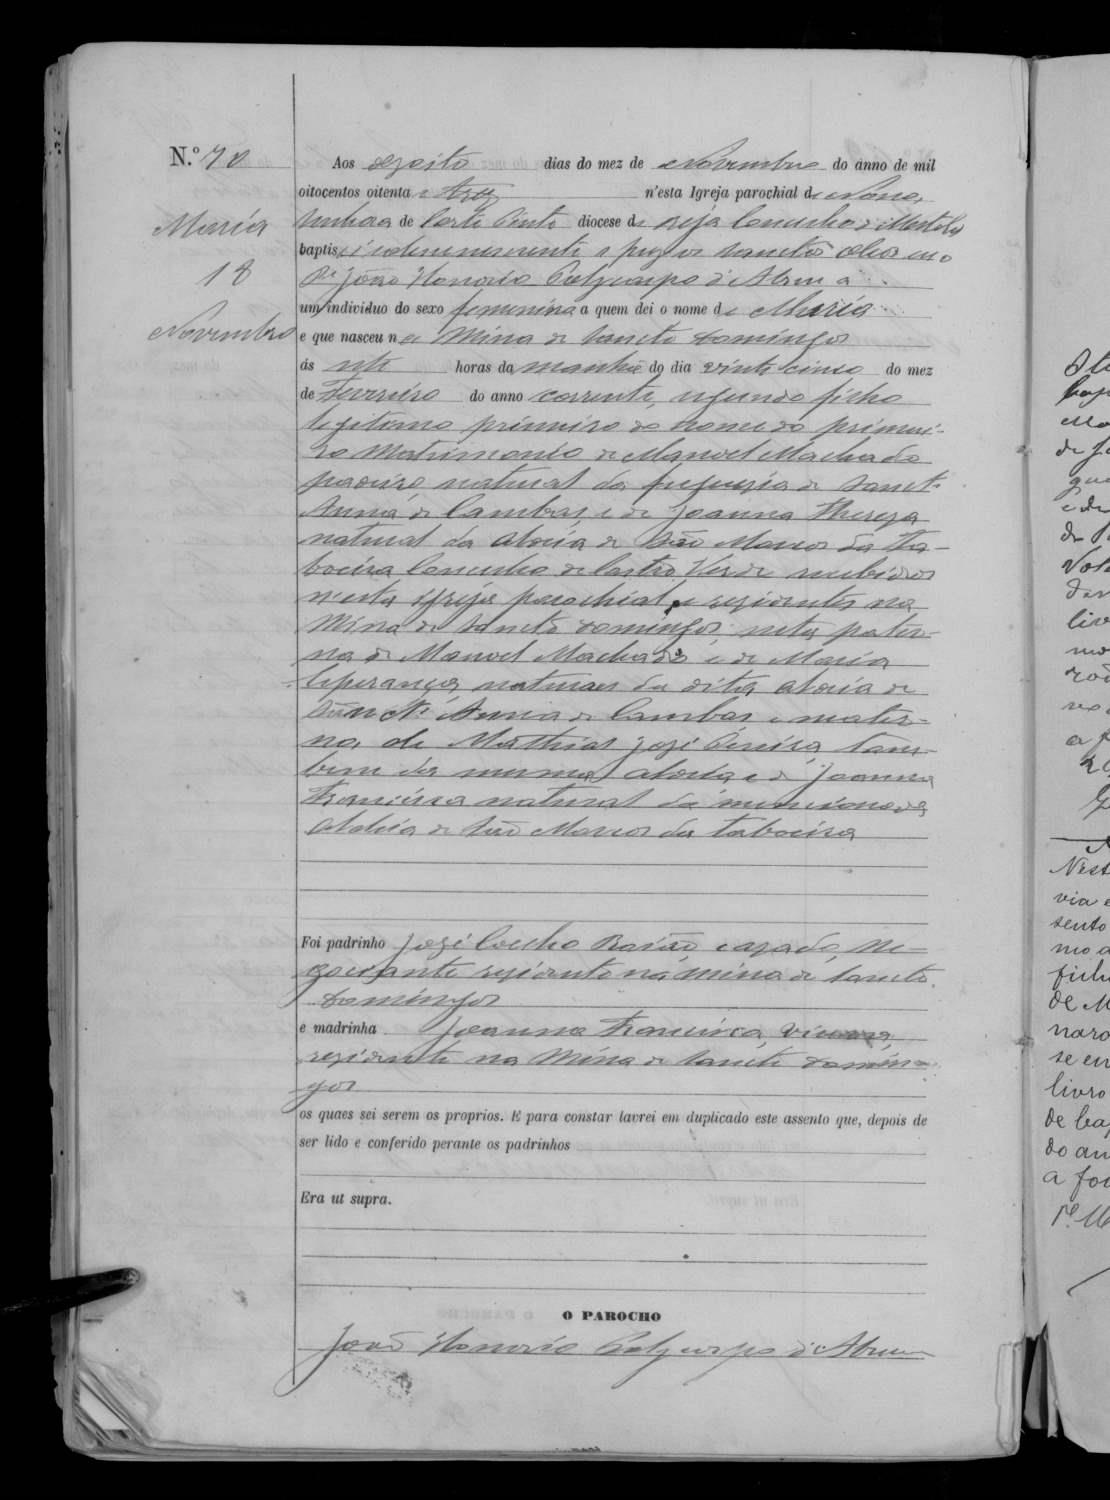 N.º 70
Aos dezoito dias do mez de Novembro do anno de mil
oitocentos oitenta e trez n'esta Igreja parochial de Nossa
Senhora de Corte Pinto diocese de Beja Concelho de Mertola
baptisei solemnemente e puz os sanctos oleos eu o
Pe João Honorio Polycarpo d'Abreu a
um individuo do sexo feminino a quem dei o nome de Maria
e que nasceu na Mina de Sancto Domingos
ás sete horas da manhã do dia vinte cinco do mez
de Fevereiro do anno corrente, segundo filho
legitimo primeiro do nome do primei-
ro Matrimonio de Manoel Machado
natural da freguezia de Sanct
Anna de Cambas, e de Joanna Thereza
natural da aldeia de São Marcos da Ta-
boeira Concelho de Castro Verde recebidos
nesta Igreja parochial, e rezidentes na
Mina de Sancto Domingos; neta pater-
na de Manoel Machado e de Maria
Esperança, naturaes da dita aldeia de
Sanct' Anna de Cambas e mater-
na, de Mathias José Pereira, tam-
bem da mesma aldeia e de Joanna
Francisca natural da mencionada
aldeia de São Marcos da Taboeira
Foi padrinho José Coelho casado, ne-
gociante rezidente na Mina de Sancto
Domingos
e madrinha Joanna Francisca, viuva,
rezidente na Mina de Sancto Domin-
gos
os quaes sei serem os proprios. E para constar lavrei em duplicado este assento que, depois de
ser lido e conferido perante os padrinhos
Era ut supra.
O PAROCHO
João Honorio Polycarpo d'Abreu
Maria
18
Novembro